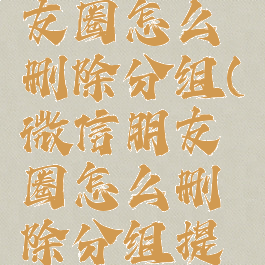 友圈怎么
删除分组(
微信朋友
圈怎么删
除分组提